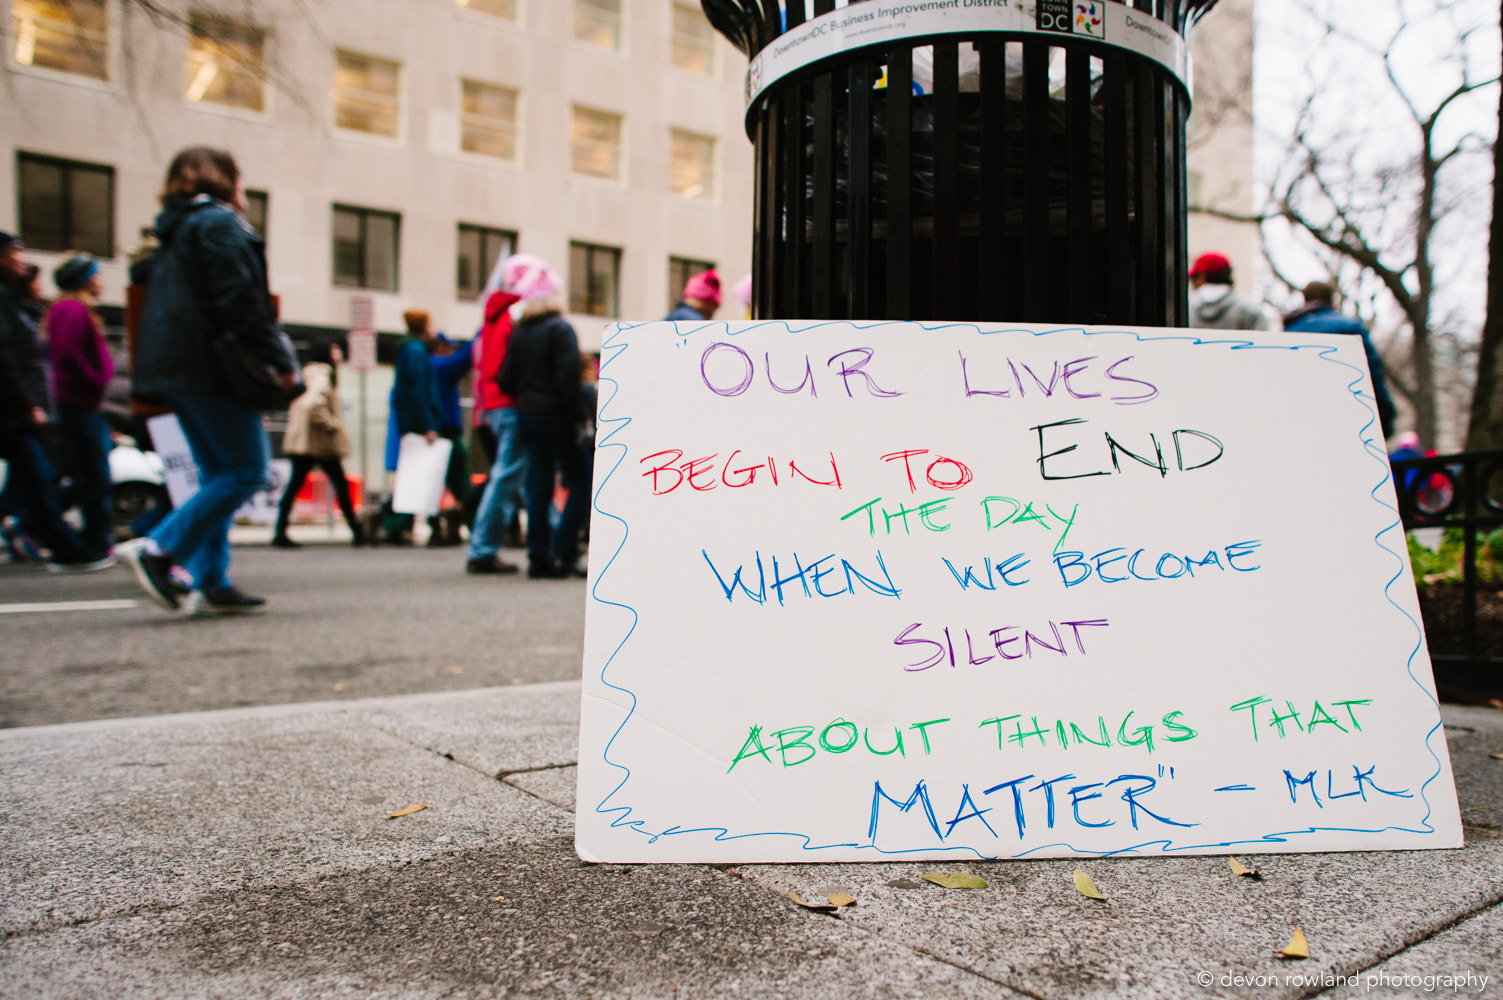 DowntownDC Business Improvement District
DOWN
TOWN
DC
DowntownDC
"OUR LIVES
BEGIN TO END
THE DAY
WHEN WE BECOME
SILENT
ABOUT THINGS THAT
MATTER" - MLK
© devon rowland photography